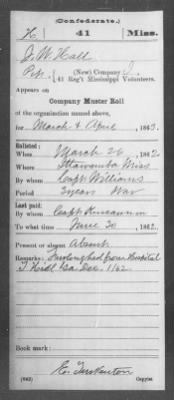 (Confederate.)
H 41 Miss.
J. W. Hall
Pvt., (New) Company I,
41 Reg't Mississippi Volunteers.
Appears on
Company Muster Roll
of the organization named above,
for March & April, 1863.
Enlisted:
When March 26, 1862.
Where Itawamba Miss
By whom Capt Williams
Period 3 years War
Last paid:
By whom Capt Kincannon
To what time June 30, 1862.
Present or absent Absent
Remarks: Furloughed from Hospital
Ga Dec. 1862
Book mark:
(642) Copyist.